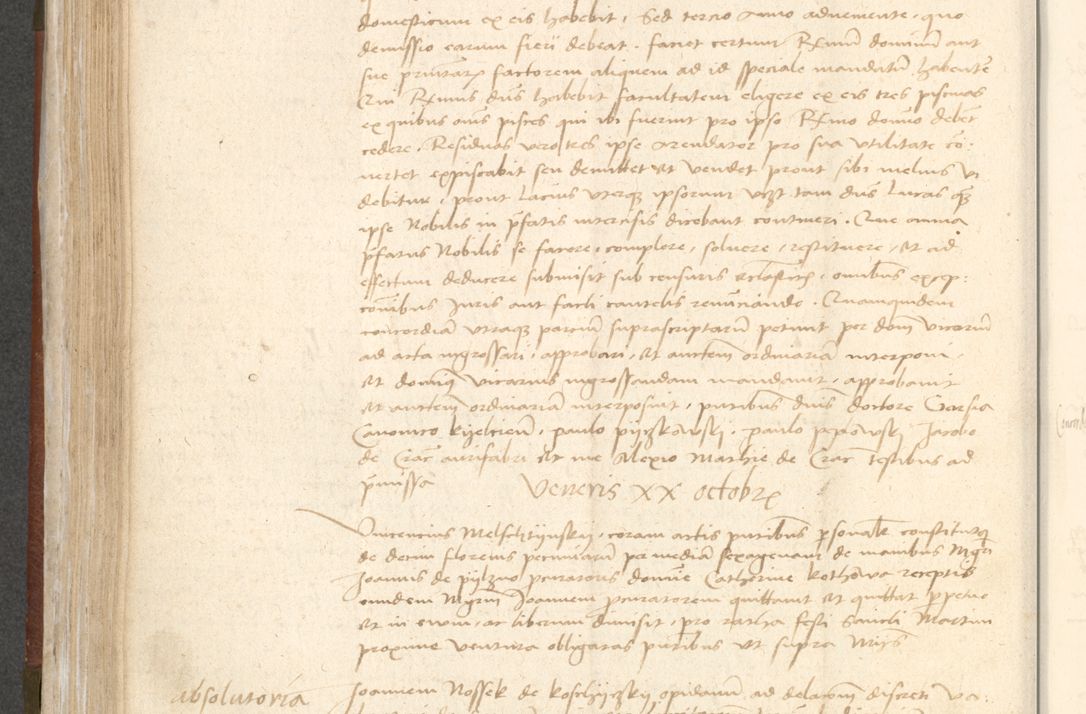 domesticum ex eis habebit, Sed tercio anno adveniente, quo
demissio earum fieri debeat, faciet certum Rmum dominum aut
sue prnitatis factorem aliquem ad id speciale mandatum habentē
Qui Rmus dūs habebit facultatem eligere ex eis tres piscinas
ex quibus oīs pisces qui ibi fuerint pro ipso Rmo domīo debēt
cedere. Residuas vero tres ipse arendator pro sua utilitate cō:
vertet expiscabit seu demittet et vendet prout sibi melius vi
debitur, prout lacius uterqz ipsorum vzt tam dūs Lucas qz
ipse Nobilis in pfatis intercisis dicebant contineri. Que omnia
pfatus Nobilis se facere, complere, solvere, restituere, et ad
effectum deducere submisit sub censuris ecclasticis, omibus excep:
conibus Juris aut facti cautelis renunciando. Quamquidem
concordiā utraqz parciū suprascriptarū petiit per dom vicariū
ad acta ingrossari, approbari, et auctem ordinariā interponi,
et domīus vicarius ingrossandam mandavit, approbavit
et auctem ordinariā interposuit, pntibus dnis doctore Garsia
Canonico kijelcieñ, paulo pijzkowski, paulo pepowski Jacobo
de Crac aurifabri et me Alexio Mathie de Crac testibus ad
pmissa
Veneris XX octobris
Vincencius Melschtijnskij, coram actis pntibus psonalr constitutus
de decim florenis pecuniarū per mediā sexagenam de manibus Mgri
Joannis de pijlzno pcuratoris domine Catherine kothowa receptis
eundem Mgrm Joannem pcuratorem quittavit et quittat ppetuo
et in evum, ac liberum dimisit, pro ratha festi Sancti Martini
proxime ventura obligatus pntibus ut supra
absolutoria
Joannem Nossek de koschijczkij opidanum ad delacom discreti Va: